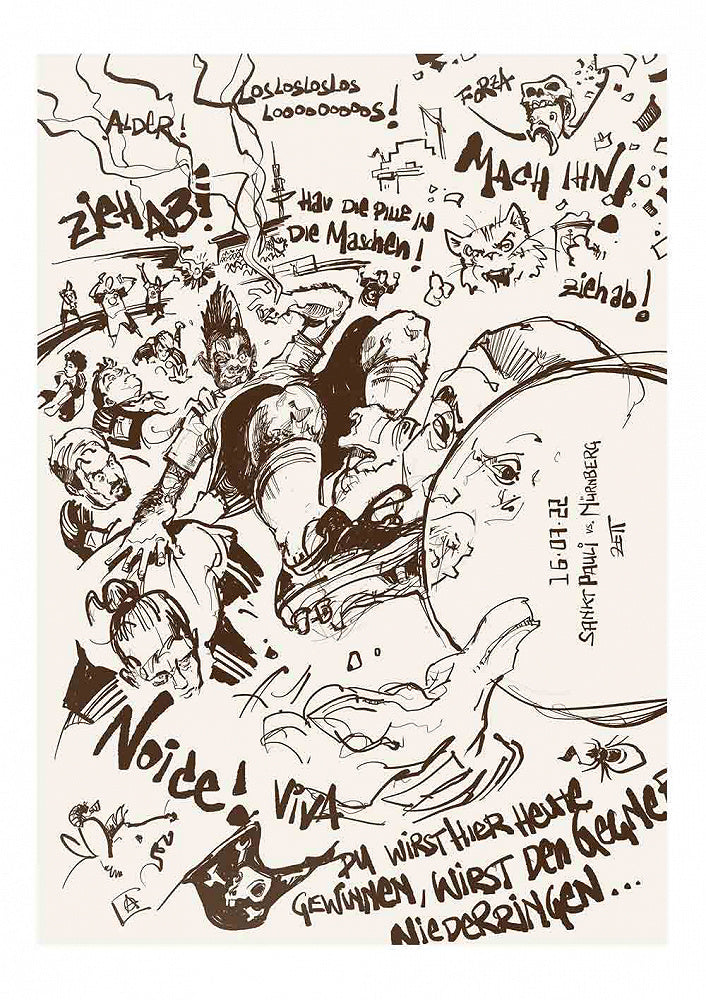 LosLosLosLos
Looooooooos!
FORZA
ALDER!
MACH IHN!
ZIEH AB!
HAU DIE PILLE IN
DIE MASCHEN!
ziehab!
16.07.22
SANKT PAULI vs. NÜRNBERG
ZETT
NOICE!
VIVA
DU WIRST HIER HEUTE
GEWINNEN, WIRST DEN GEGNER
NIEDERRINGEN...
A